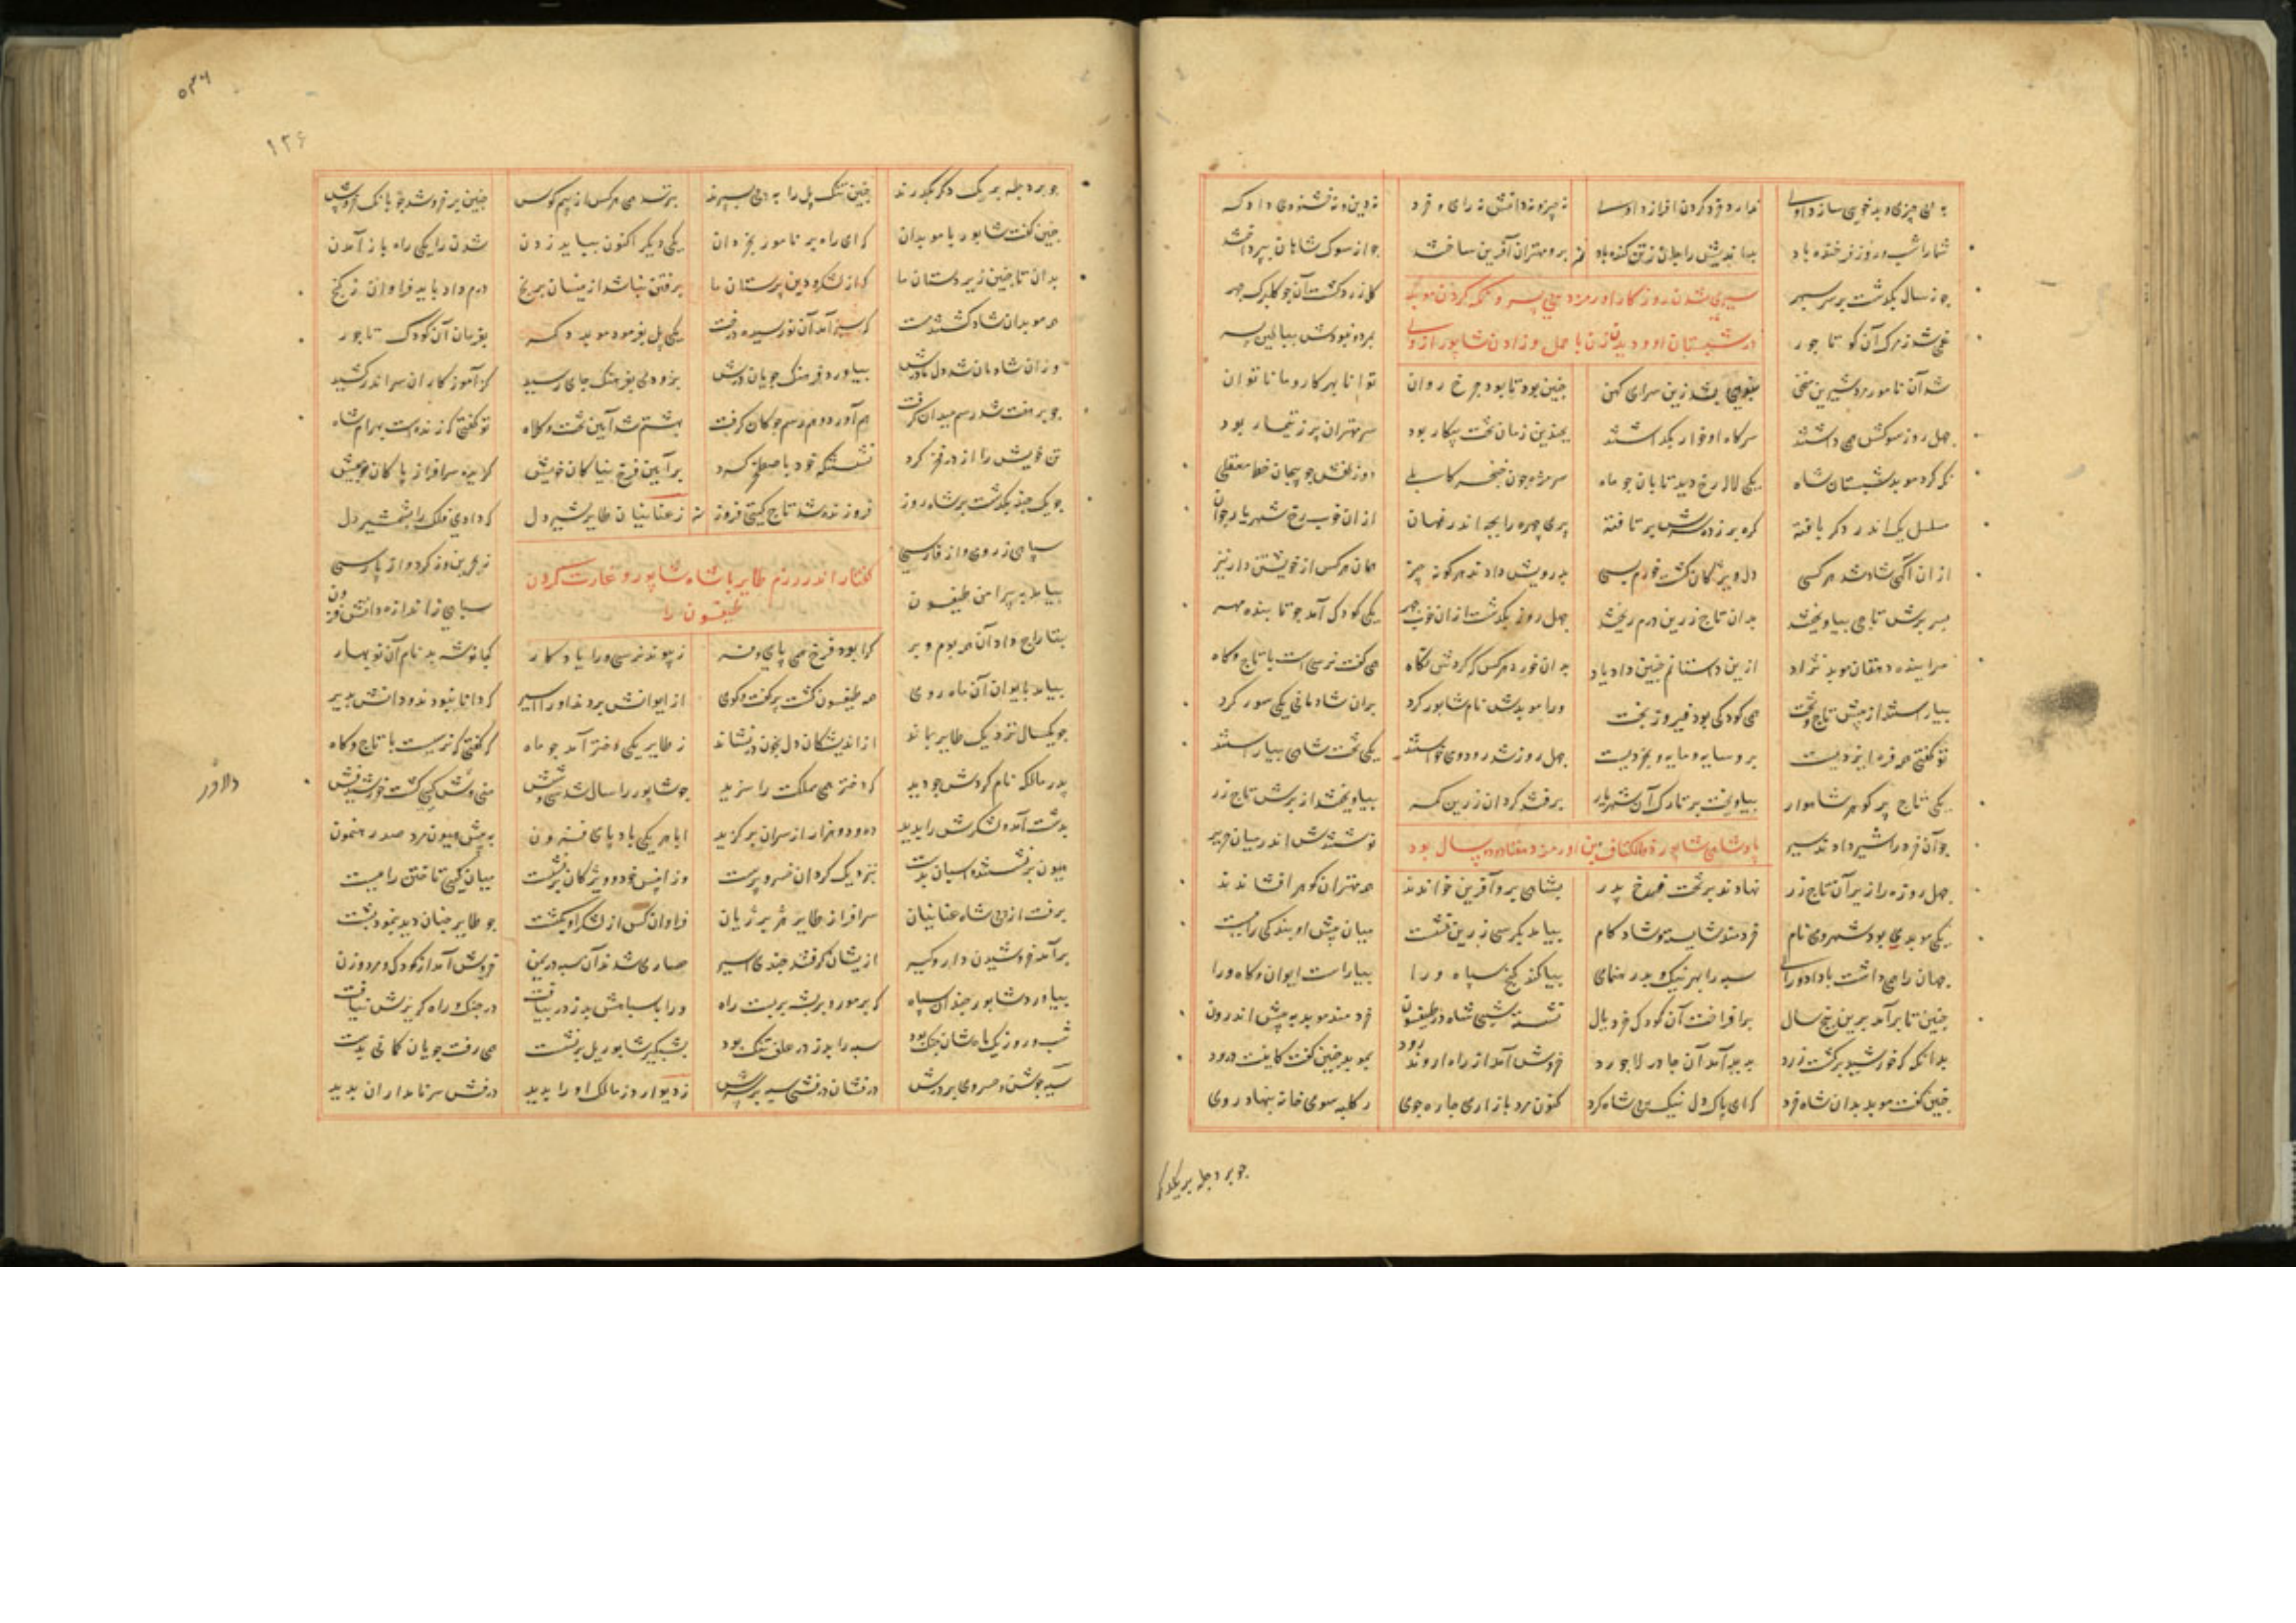 به بی چیزی و بدخویی سازد اوی ندارد خرد گردن افراز داوی نه چیز و نه دانش نه رای و خرد نه دین و نه خشنودی دادگر
شما را شب و روز فرخنده باد بداندیش را جان زتن کنده باد برو مهتران آفرین ساختند چو از سوک شاهان بپرداختند
چو نه سال بگذشت بر سر سپهر گل زرد گشت آن چو گلبرگ چهر
سپری شدن روزگار اورمزد بی پسر و نگه کردن موبد
غمی شد ز مرگ آن کو تاجور بمرد و نبودش ببالین پسر
در شبستان او و دیدن زن با حمل و زادن شاپور از وی
شد آن نامور مرد شیرین سخن بنوی بشد زین سرای کهن چنین بود تا بود چرخ روان توانا بهر کار و ما ناتوان
چهل روز سوکش همی داشتند سر گاه او خوار بگذاشتند بچندین زمان تخت بیکار بود سر مهتران پر ز تیمار بود
نگه کرد موبد شبستان شاه یکی لاله رخ دید تابان چو ماه سر مژه چون خنجر کابلی دو زلفش چو پیچان خط معقلی
مسلسل یک اندر دگر بافته گره بر زده سرش بر تافته پری چهره را بچه اندر نهان از آن خوب رخ شهریار جهان
از آن آگهی شاد شد هر کسی بدرویش دادند هر گونه چیز همان هر کس از خویشتن دار نیز
بسر برش تاجی بیاویختند بدان تاج زرین درم ریختند چهل روز بگذشت از آن خوب چهر یکی کودک آمد چو تابنده مهر
سراینده دهقان موبد نژاد ازین داستانم چنین داد یاد
بیاراستند از پیش تاج و تخت همی کودکی بود فیروز بخت ورا موبدش نام شاپور کرد بران شادمانی یکی سور کرد
تو گفتی همه فره ایزدیست برو سایه و مایه بخردیست چهل روز شد رود و می خواستند یکی تخت شاهی بیاراستند
یکی تاج پر گوهر شاهوار بیاویخت بر تارک آن شهریار برفتند گردان زرین کمر بیاویختند از برش تاج زر
چو آن خرد را شیر دادند سیر نوشتندش اندر میان حریر
پادشاهی شاپور ذوالاکتاف بن اورمزد هفتاد و دو سال بود
چهل روزه را زیر آن تاج زر نهادند بر تخت فرخ پدر بشاهی برو آفرین خواندند همه مهتران گوهر افشاندند
یکی موبدی بود شهروی نام خردمند شایسته و شادکام بیامد بکرسی زرین نشست میان پیش او بندگی را ببست
جهان را همی داشت با داد و رای سپه را بهر نیک و بد رهنمای بیاکند گنج سپاه ورا بیاراست ایوان و گاه ورا
چنین تا برآمد برین پنج سال برافراخت آن کودک خرد یال نشسته شبی شاه در طیسفون خردمند موبد به پیش اندرون
بدانگه که خورشید برگشت زرد پدید آمد آن چادر لاجورد خروش آمد از راه اروندرود بموبد چنین گفت کاینت درود
چنین گفت موبد بدان شاه خرد که ای پاک دل نیک پی شاه گرد کنون مرد بازاری چاره جوی ز کلبه سوی خانه بنهاد روی
چو بر دجله بر یکدگر
۱۲۶
چو بر دجله بر یک دگر بگذرند چنین تنگ پل را به پی بسپرند بترسد همی هر کس از بیم کوس چنین برخروشند چو بانگ خروس
چنین گفت شاپور با موبدان که ای راهبر نامور بخردان یکی دیگر اکنون بباید زدن شدن را یکی راه باز آمدن
بدان تا چنین زیردستان ما که از لشکر و دین پرستان ما برفتن نباشد ازینسان برنج درم داد باید فراوان ز گنج
همه موبدان شاد گشتند سخت که سبز آمد آن نورسیده درخت یکی پل بفرمود موبد دگر بفرمان آن کودک تاجور
وزان شادمان شد دل مادرش بیاورد فرهنگ جویان برش بزودی بفرهنگ جای رسید کز آموزگاران سر اندر کشید
چو بر هفت شد رسم میدان گرفت هم آورد و هم رسم چوگان گرفت بهشتم شد آیین تخت و کلاه تو گفتی که زندست بهرام شاه
تن خویش را از در فخر کرد نشستنگه خود باصطخر کرد بر آیین فرخ نیاکان خویش گزیده سرافراز پاکان خویش
چو یک چند بگذشت بر شاه روز فروزنده شد تاج گیتی فروز ز غسانیان طایر شیردل که دادی فلک را بشمشیر دل
سپاهی ز رومی و از فارسی ز بحرین و ز کرد و از پارسی
گفتار اندر رزم طایر با شاه شاپور و غارت کردن
طیفسون را
بیامد به پیرامن طیفسون سپاهی ز اندازه دانش فزون
بتاراج داد آن همه بوم و بر کرا بود فرخ پی پای و سر ز پیوند نرسی ورا یادگار کجا نوشه بد نام آن نوبهار
بیامد بایوان آن ماه روی همه طیفسون گشت پر گفت و گوی از ایوانش بردند او را اسیر که دانا نبودند و دانش پذیر
چو یکسال نزدیک طایر بماند از اندیشگان دل بخون در نشاند ز طایر یکی دختر آمد چو ماه که گفتی که نرسیست با تاج و گاه
پدر مالکه نام کردش چو دید که دختر همی مملکت را سزید چو شاپور را سال شد بیست و شش
بدشت آمد و لشکرش را بدید ده و دو هزار از سران برگزید ابا هر یکی بادپای هیون به پیش هیون مرد صد رهنمون
هیون برنشستند و اسبان بدست بنزدیک گردان خسرو پرست وزان پس خود و ویژگان برنشست میان کیی تاختن را ببست
برفت از پی شاه غسانیان سرافراز طایر هژبر ژیان فراوان کس از لشکر او بکشت چو طایر چنان دید بنمود پشت
برآمد خروشیدن دار و گیر ازیشان گرفتند چندی اسیر حصاری شدند آن سپه در یمن خروش آمد از کودک و مرد و زن
بیاورد شاپور چندان سپاه که بر مور و بر پشه بربست راه ورا با سپاهش بدز در بیافت در جنگ و راه گریزش نیافت
شب و روز یک ماهشان جنگ بود سپه را بدز در علف تنگ بود بشبگیر شاپور یل برنشست همی رفت جویان کمانی بدست
سیه جوشن خسروی در برش درفشان درفشی سیه بر سرش ز دیوار دز مالکه او را بدید درفش سر نامداران بدید
دلاور